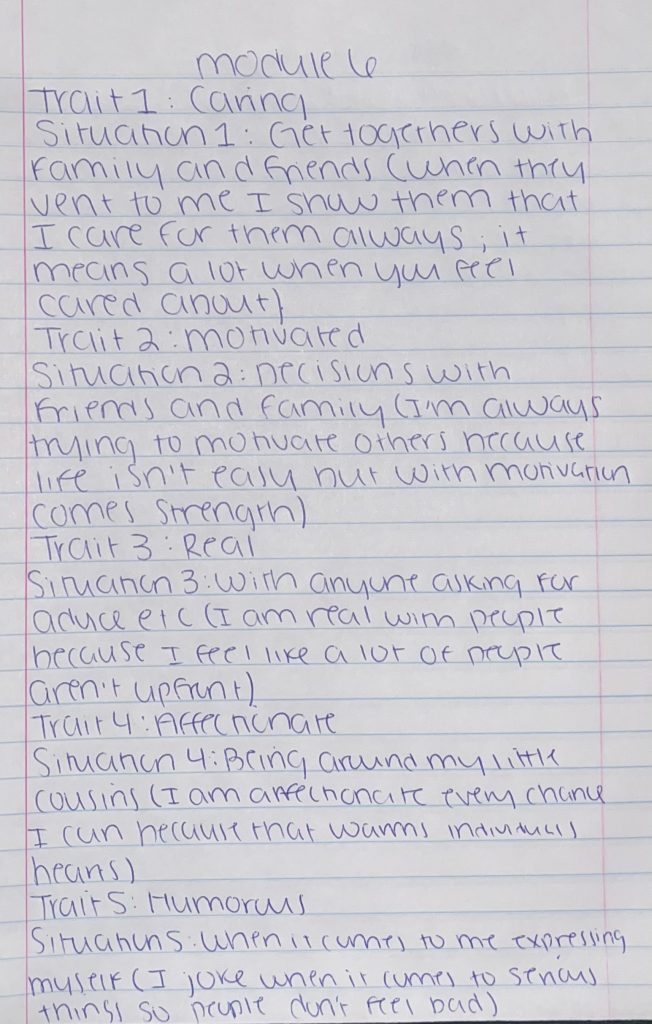 module 6
Trait 1: Caring
Situation 1: Get togethers with
family and friends (when they
vent to me I show them that
I care for them always, it
means a lot when you feel
cared about)
Trait 2: motivated
Situation 2: Decisions with
friends and family (I'm always
trying to motivate others because
life isn't easy but with motivation
comes strength)
Trait 3: Real
Situation 3: with anyone asking for
advice etc (I am real with people
because I feel like a lot of people
aren't upfront)
Trait 4: Affectionate
Situation 4: Being around my little
cousins (I am affectionate every chance
I can because that warms individuals
hearts)
Trait 5: Humorous
Situation 5: when it comes to me expressing
myself (I joke when it comes to serious
things so people don't feel bad)